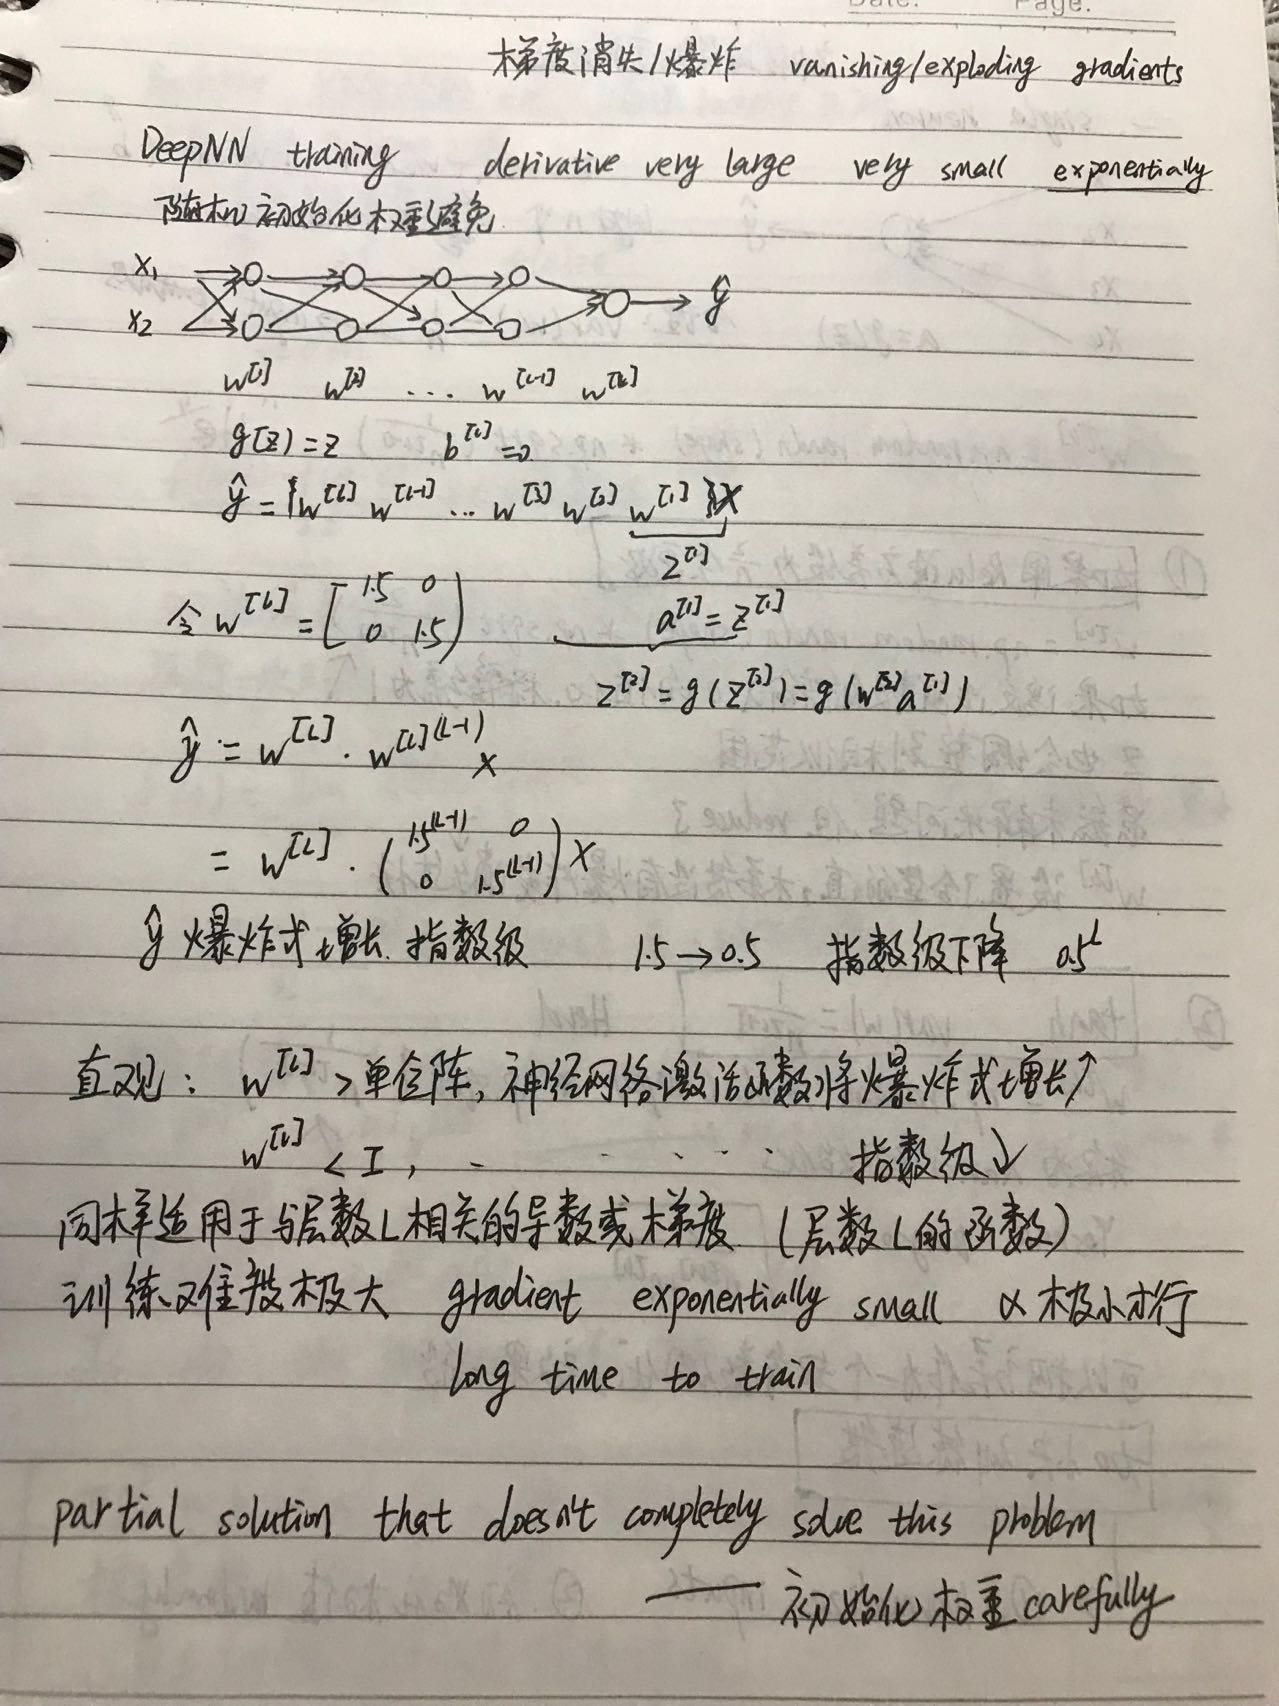 Date. Page.
梯度消失/爆炸 vanishing/exploding gradients
DeepNN training derivative very large very small exponentially
随机初始化权重避免
x₁
x₂ ŷ
w^[1] w^[2] ... w^[L-1] w^[L]
g(z)=z b^[L]=0
ŷ = w^[L] w^[L-1] ... w^[3] w^[2] w^[1] X
z^[1]
令 w^[L] = [1.5 0
0 1.5) a^[1] = z^[1]
z^[2] = g(z^[2]) = g(w^[2] a^[1])
ŷ = w^[L] · w^[L](L-1) X
= w^[L] · (1.5^(L-1) 0
0 1.5^(L-1)) X
ŷ 爆炸式增长 指数级 1.5→0.5 指数级下降 0.5^L
直观: w^[L] > 单位阵, 神经网络激活函数将爆炸式增长↑
w^[L] < I, - · · · · 指数级↓
同样适用于与层数L相关的导数或梯度 (层数L的函数)
训练难度极大 gradient exponentially small α 极小步行
long time to train
partial solution that doesn't completely solve this problem
—— 初始化权重 carefully